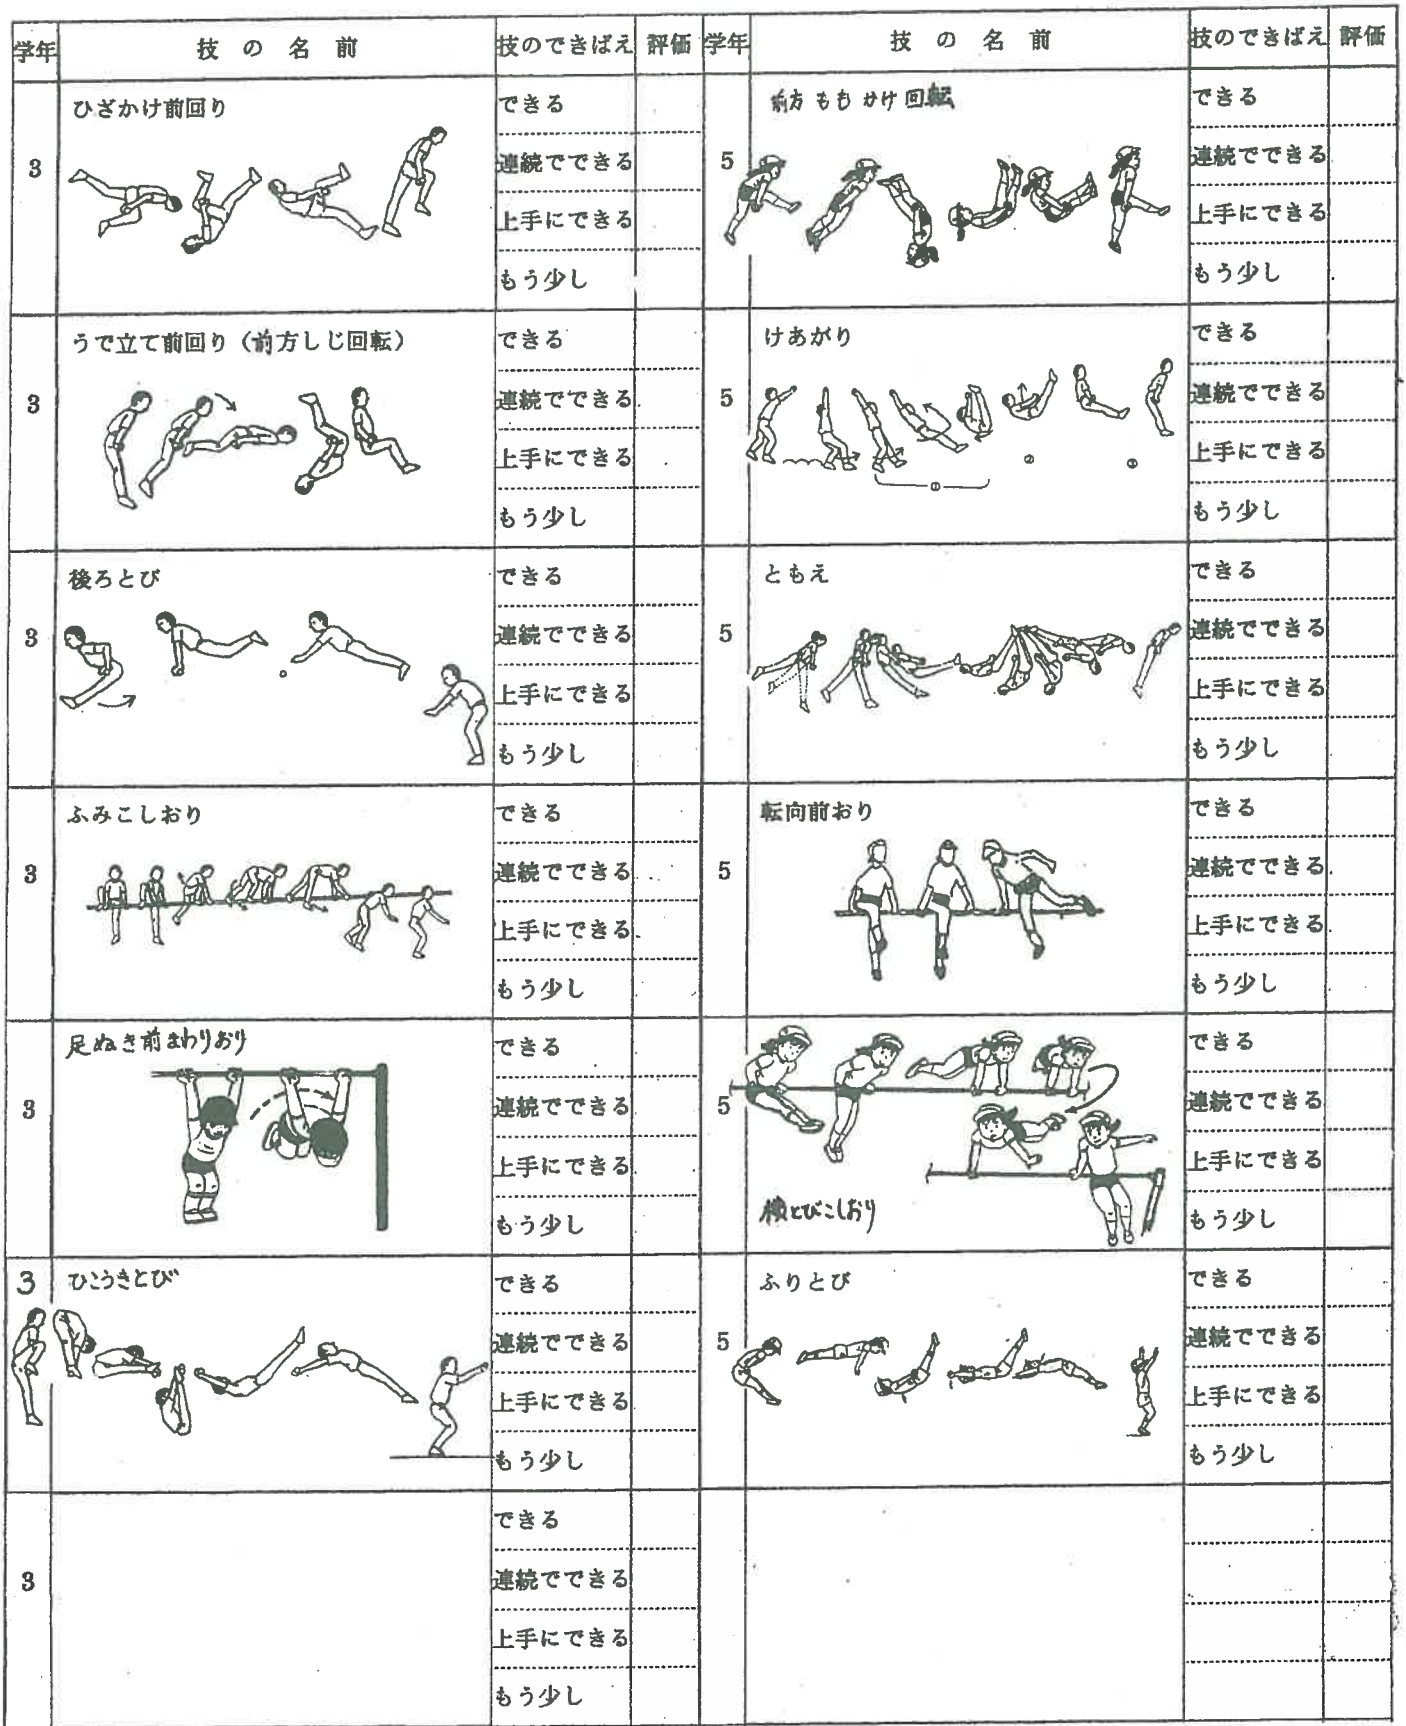 学年 技の名前 技のできばえ 評価 学年 技の名前 技のできばえ 評価
3
ひざかけ前回り
できる
連続でできる
上手にできる
もう少し
5
前方ももかけ回転
できる
連続でできる
上手にできる
もう少し
3
うで立て前回り（前方しじ回転）
できる
連続でできる
上手にできる
もう少し
5
けあがり
① ② ③
できる
連続でできる
上手にできる
もう少し
3
後ろとび
できる
連続でできる
上手にできる
もう少し
5
ともえ
できる
連続でできる
上手にできる
もう少し
3
ふみこしおり
できる
連続でできる
上手にできる
もう少し
5
転向前おり
できる
連続でできる
上手にできる
もう少し
3
足ぬき前まわりおり
できる
連続でできる
上手にできる
もう少し
5
横とびこしおり
できる
連続でできる
上手にできる
もう少し
3
ひこうきとび
できる
連続でできる
上手にできる
もう少し
5
ふりとび
できる
連続でできる
上手にできる
もう少し
3
できる
連続でできる
上手にできる
もう少し